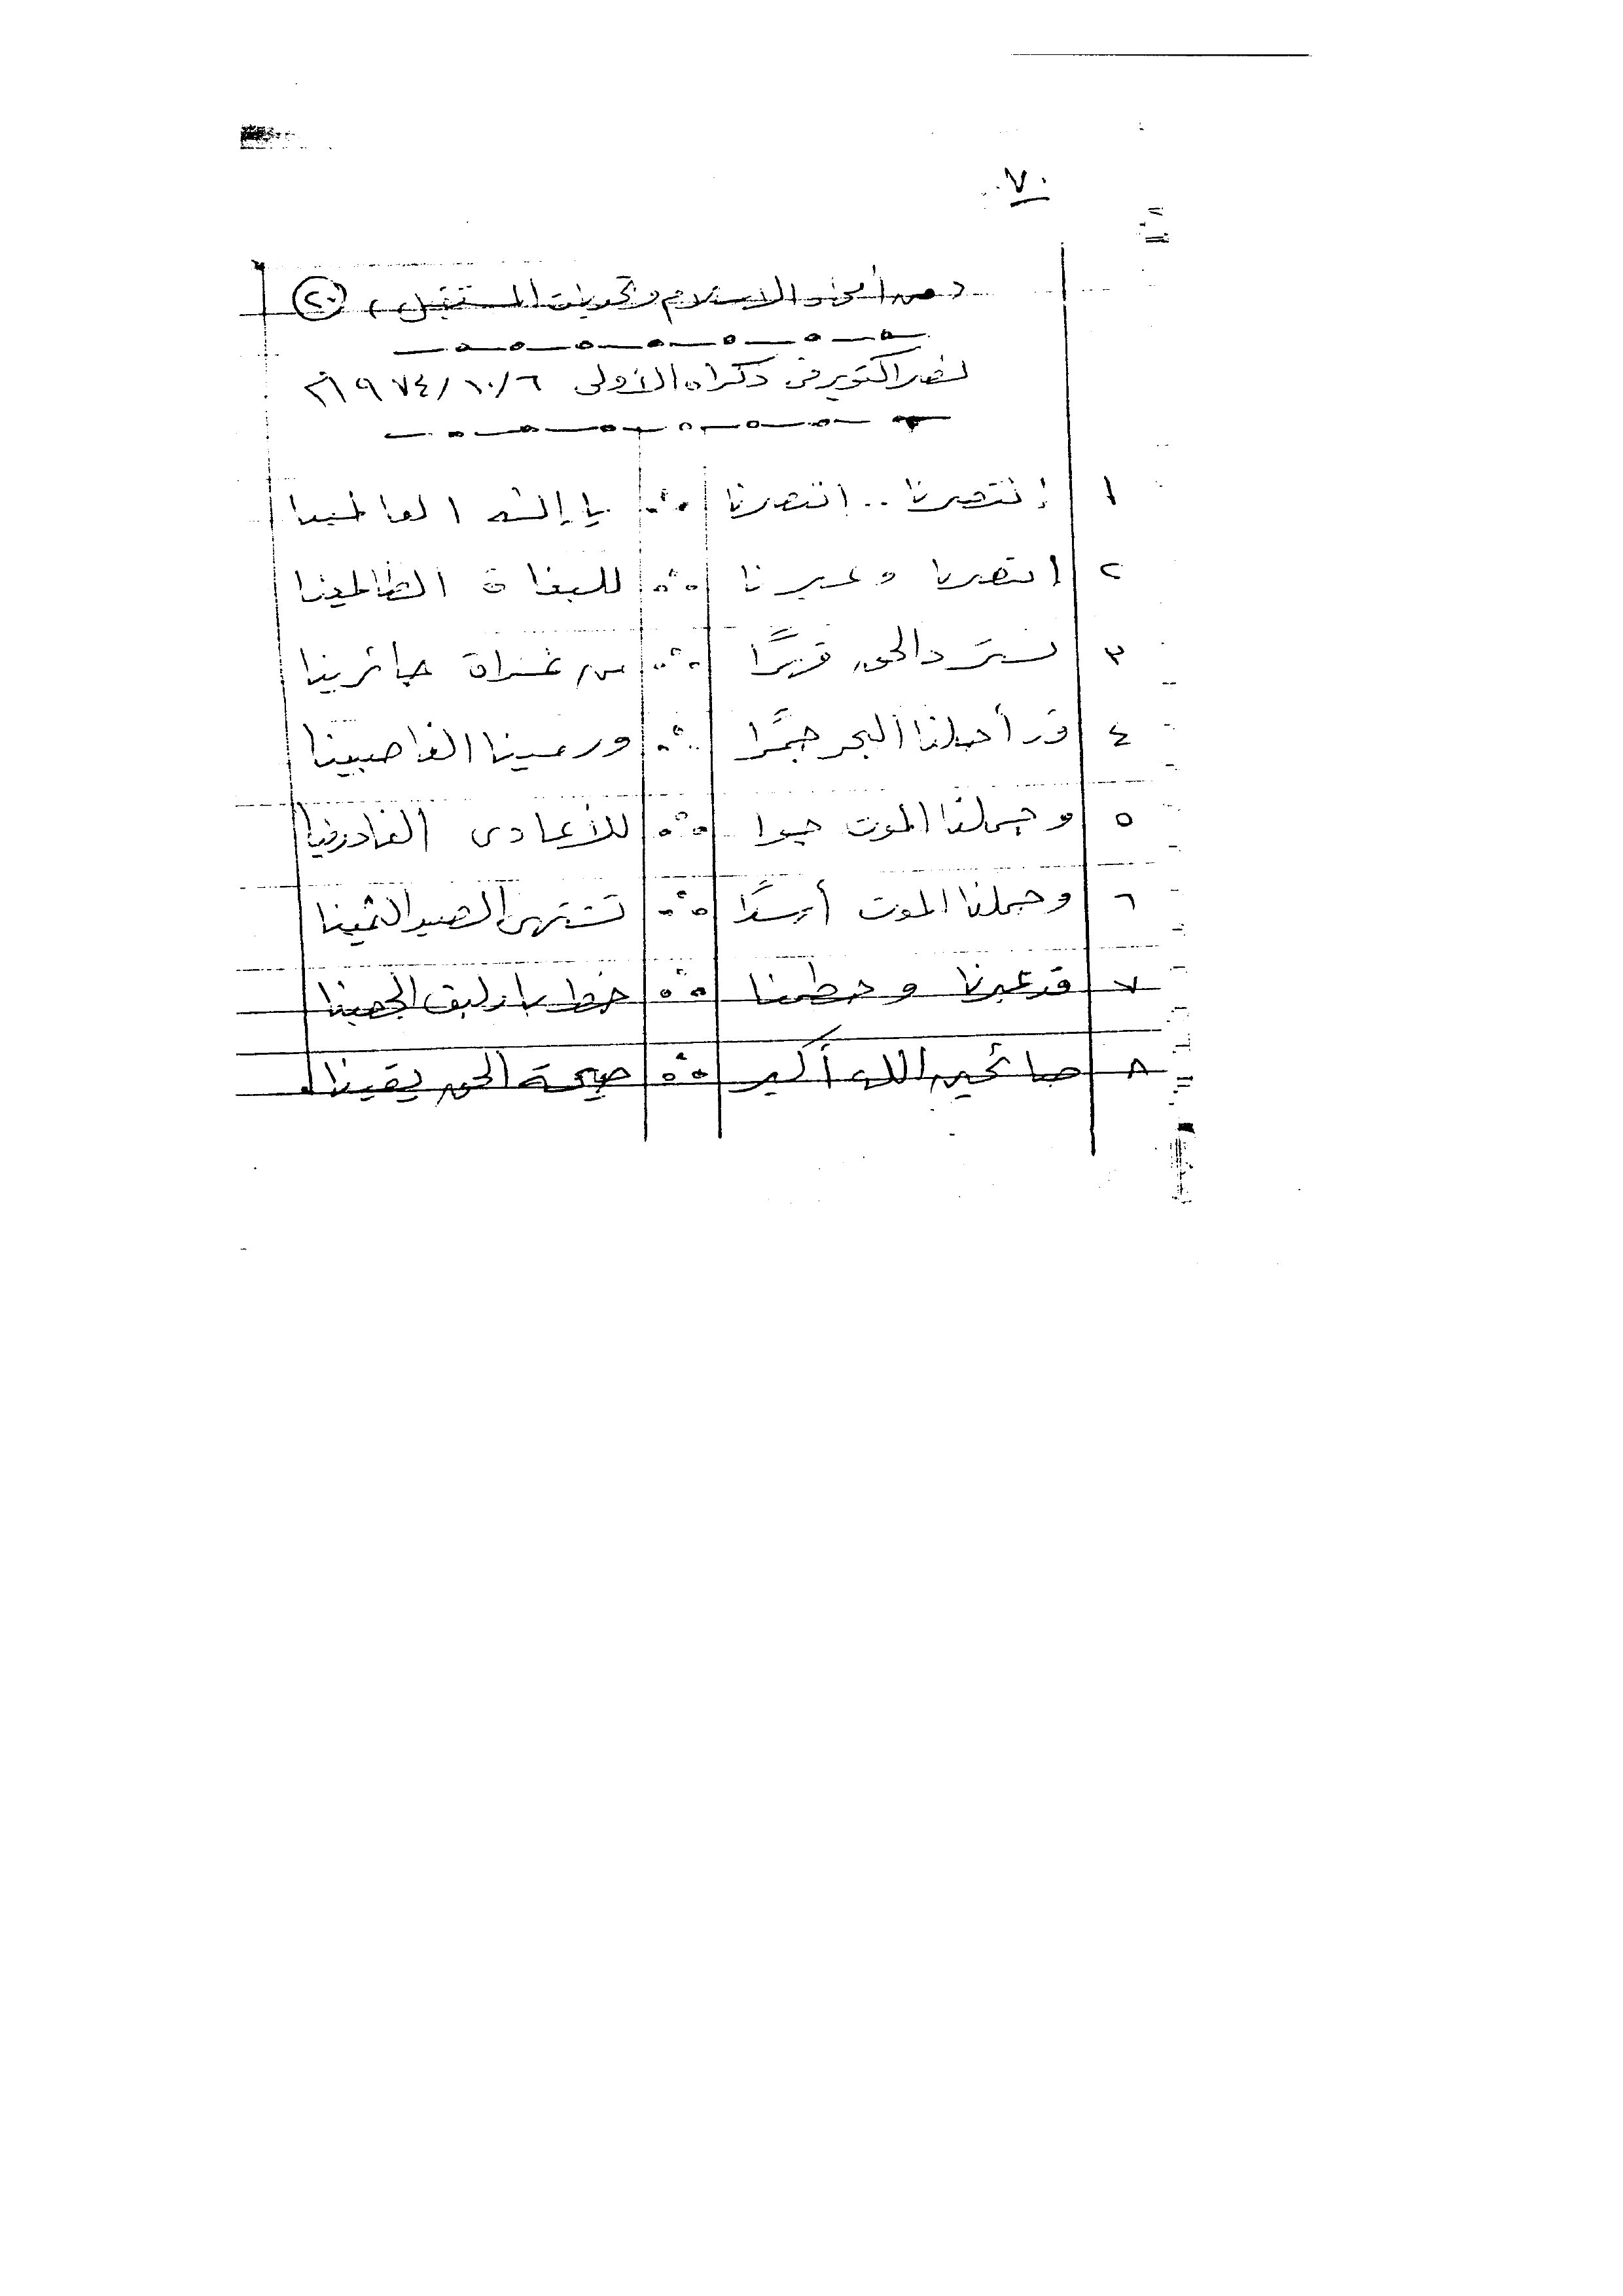 ٧٠
(من أمجاد الاسلام وتحديات المستقبل) (٢٠)
نصر اكتوبر فى ذكراه الأولى ٦/١٠/١٩٧٤م
١ إنتصرنا .. انتصرنا ∴ يا إله العالمينا
٢ انتصرنا وعبرنا ∴ للبغاة الظالمينا
٣ نسترد الحق قهرًا ∴ من غزاة جائرينا
٤ قد أحلنا البحر جمرًا ∴ ورمينا الغاصبينا
٥ وجعلنا الموت جوا ∴ للأعادى الغادرينا
٦ وجعلنا الموت أرضًا ∴ تشتهى الصيد الثمينا
٧ قد عبرنا وحطمنا ∴ خط بارليف الحصينا
٨ صائحين الله أكبر ∴ صيحة الحق يقينا